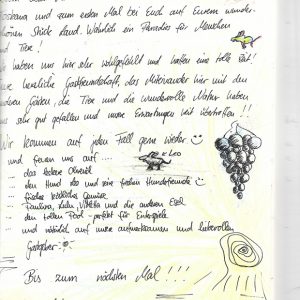 und zum ersten Mal bei Euch auf Eurem wunder-
schönen Stück Land. Wahrlich ein Paradies für Menschen
und Tiere!
haben uns hier sehr wohlgefühlt und hatten eine tolle Zeit!
herzliche Gastfreundschaft, das Miteinander hier mit den
anderen Gästen, die Tiere und die wundervolle Natur haben
uns sehr gut gefallen und unsere Erwartungen weit übertroffen!!
Wir kommen auf jeden Fall gerne wieder
und freuen uns auf...
Leo
... das leckere Olivenöl
... den Hund Leo und seine frechen Hundefreunde
... frisches Gemüse
... Paulina, Lulu, und die anderen Esel
... den tollen Pool - perfekt für
... und natürlich auf unsere aufmerksamen und liebevollen
Gastgeber
Bis zum nächsten Mal!!!